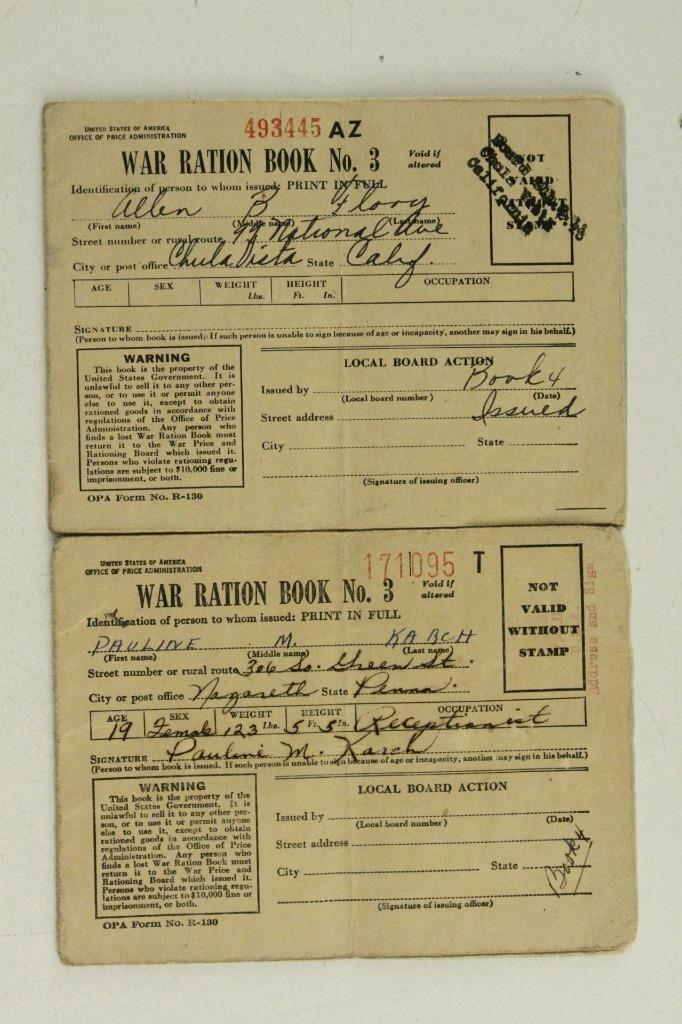 UNITED STATES OF AMERICA
OFFICE OF PRICE ADMINISTRATION
493445 AZ
WAR RATION BOOK No. 3
Void if
altered
Identification of person to whom issued: PRINT IN FULL
Allen B Flory
(First name) (Middle name) (Last name)
Street number or rural route National Ave
City or post office Chula Vista State Calif.
AGE SEX WEIGHT Lbs. HEIGHT Ft. In. OCCUPATION
SIGNATURE
(Person to whom book is issued. If such person is unable to sign because of age or incapacity, another may sign in his behalf.)
NOT
VALID
STAMP
Chula Vista
California
WARNING
This book is the property of the
United States Government. It is
unlawful to sell it to any other per-
son, or to use it or permit anyone
else to use it, except to obtain
rationed goods in accordance with
regulations of the Office of Price
Administration. Any person who
finds a lost War Ration Book must
return it to the War Price and
Rationing Board which issued it.
Persons who violate rationing regu-
lations are subject to $10,000 fine or
imprisonment, or both.
OPA Form No. R-130
LOCAL BOARD ACTION
Book 4
Issued by
(Local board number) (Date)
Issued
Street address
City State
(Signature of issuing officer)
UNITED STATES OF AMERICA
OFFICE OF PRICE ADMINISTRATION
171095 T
WAR RATION BOOK No. 3
Void if
altered
Identification of person to whom issued: PRINT IN FULL
PAULINE M. KARCH
(First name) (Middle name) (Last name)
Street number or rural route 306 So. Green St.
City or post office Nazareth State Penna.
AGE SEX WEIGHT HEIGHT OCCUPATION
19 Female 123 Lbs. 5 Ft. 5 In. Receptionist
SIGNATURE Pauline M. Karch
(Person to whom book is issued. If such person is unable to sign because of age or incapacity, another may sign in his behalf.)
NOT
VALID
WITHOUT
STAMP
Address and Sign
WARNING
This book is the property of the
United States Government. It is
unlawful to sell it to any other per-
son, or to use it or permit anyone
else to use it, except to obtain
rationed goods in accordance with
regulations of the Office of Price
Administration. Any person who
finds a lost War Ration Book must
return it to the War Price and
Rationing Board which issued it.
Persons who violate rationing regu-
lations are subject to $10,000 fine or
imprisonment, or both.
OPA Form No. R-130
LOCAL BOARD ACTION
Issued by
(Local board number) (Date)
Street address
City State
Book 4
(Signature of issuing officer)